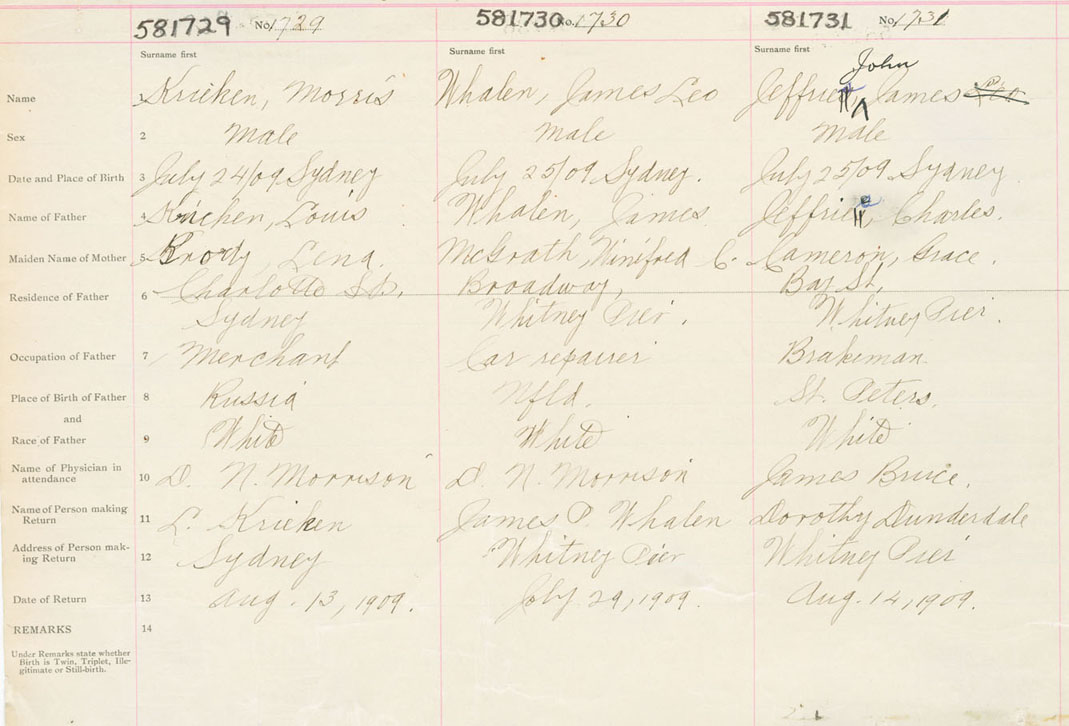 581729 No. 1729 581730 No. 1730 581731 No. 1731
Surname first Surname first Surname first
John
Name 1 Krieken, Morris Whalen, James Leo Jeffrie, James Leo
Sex 2 Male Male Male
Date and Place of Birth 3 July 24/09 Sydney July 25/09 Sydney. July 25/09 Sydney
Name of Father 4 Kricken, Louis Whalen, James Jeffrie, Charles.
Maiden Name of Mother 5 Brody, Lena. McGrath, Winifred C. Cameron, Grace.
Residence of Father 6 Charlotte St., Broadway, Bay St,
Sydney Whitney Pier. Whitney Pier.
Occupation of Father 7 Merchant Car repairer Brakeman
Place of Birth of Father 8 Russia Nfld. St. Peters.
and
Race of Father 9 White White White
Name of Physician in
attendance 10 D. N. Morrison D. N. Morrison James Bruce.
Name of Person making
Return 11 L. Krieken James P. Whalen Dorothy Dunderdale
Address of Person mak-
ing Return 12 Sydney Whitney Pier Whitney Pier
Date of Return 13 Aug. 13, 1909. Jly. 29, 1909. Aug. 14, 1909.
REMARKS 14
Under Remarks state whether
Birth is Twin, Triplet, Ille-
gitimate or Still-birth.